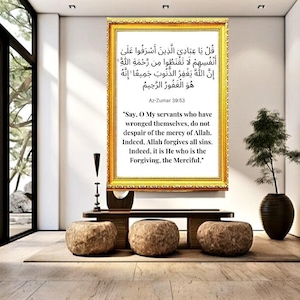 قُلْ يَا عِبَادِيَ الَّذِينَ أَسْرَفُوا عَلَىٰ
أَنْفُسِهِمْ لَا تَقْنَطُوا مِن رَّحْمَةِ اللَّهِ ۚ
إِنَّ اللَّهَ يَغْفِرُ الذُّنُوبَ جَمِيعًا ۚ إِنَّهُ
هُوَ الْغَفُورُ الرَّحِيمُ
Az-Zumar 39:53
"Say, O My servants who have
wronged themselves, do not
despair of the mercy of Allah.
Indeed, Allah forgives all sins.
Indeed, it is He who is the
Forgiving, the Merciful."